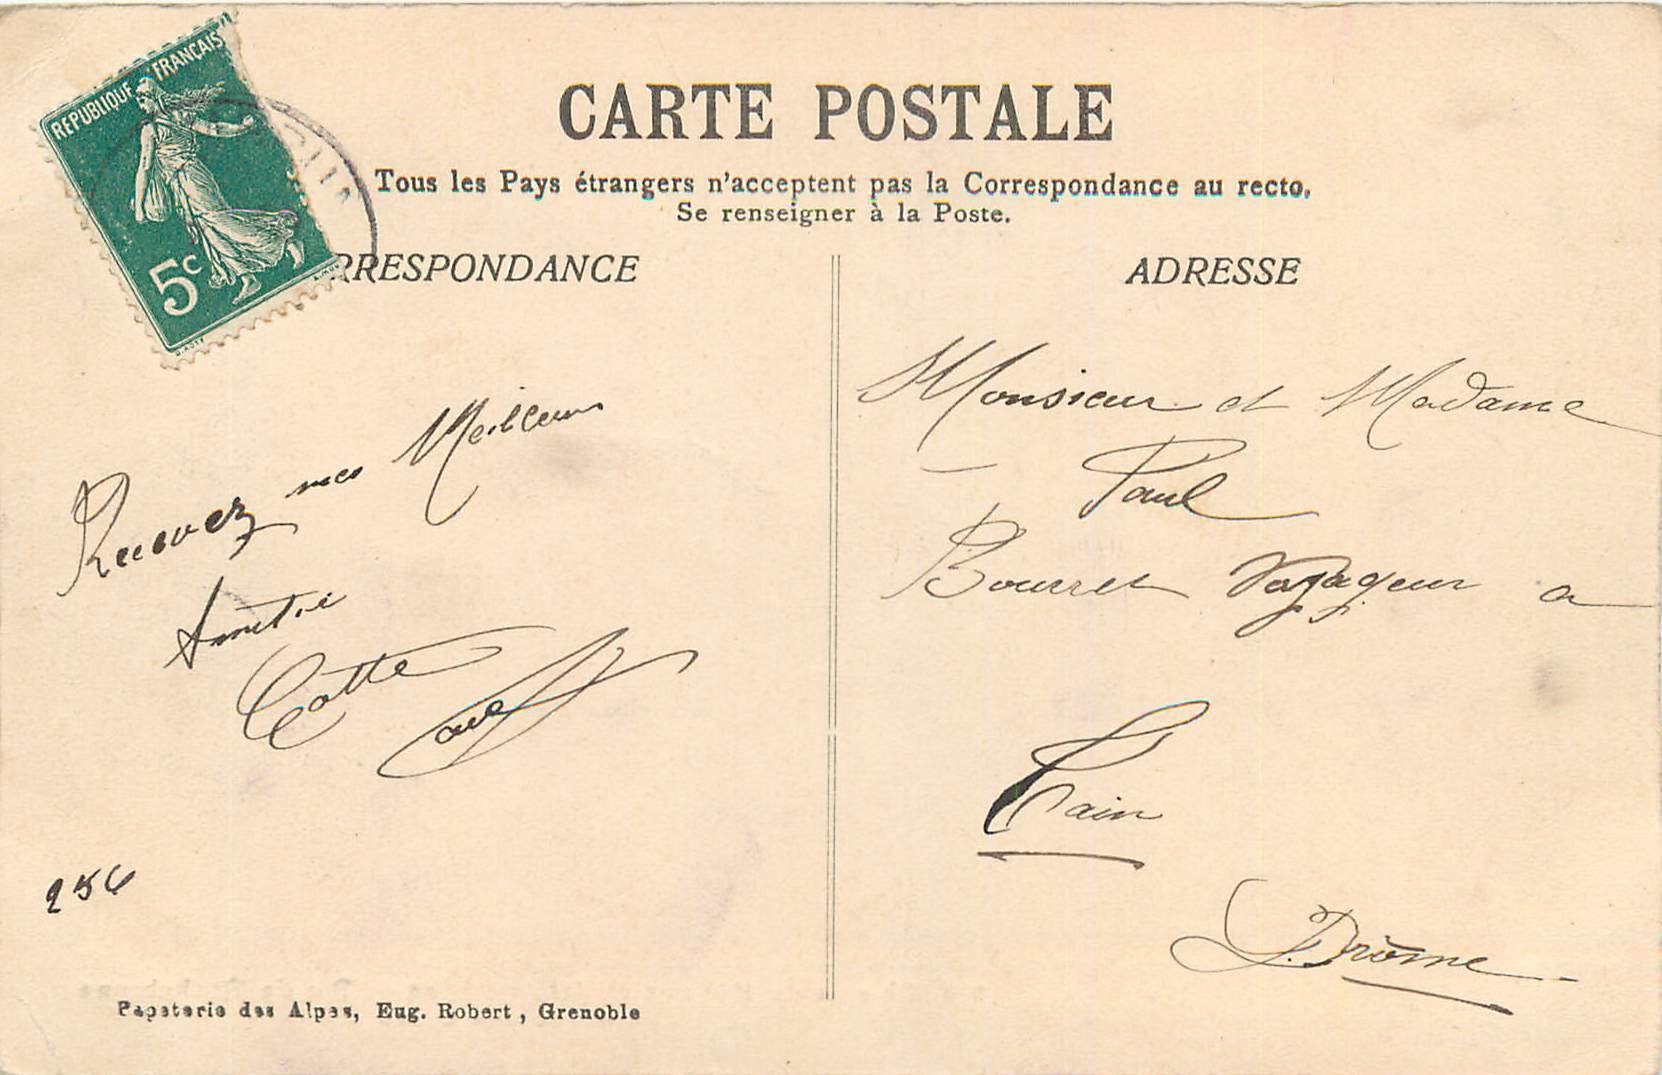 REPUBLIQUE FRANÇAISE
5c
CARTE POSTALE
Tous les Pays étrangers n'acceptent pas la Correspondance au recto.
Se renseigner à la Poste.
RRESPONDANCE
ADRESSE
Recevez mes Meilleur
Amitié
Cotte
256
Papeterie des Alpes, Eug. Robert, Grenoble
Monsieur et Madame
Paul
Bourret Voyageur a
Tain
Drôme